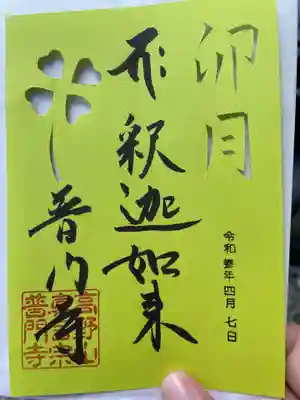 卯月
令和参年四月七日
釋迦如来
普門寺
高野山
真言宗
普門寺